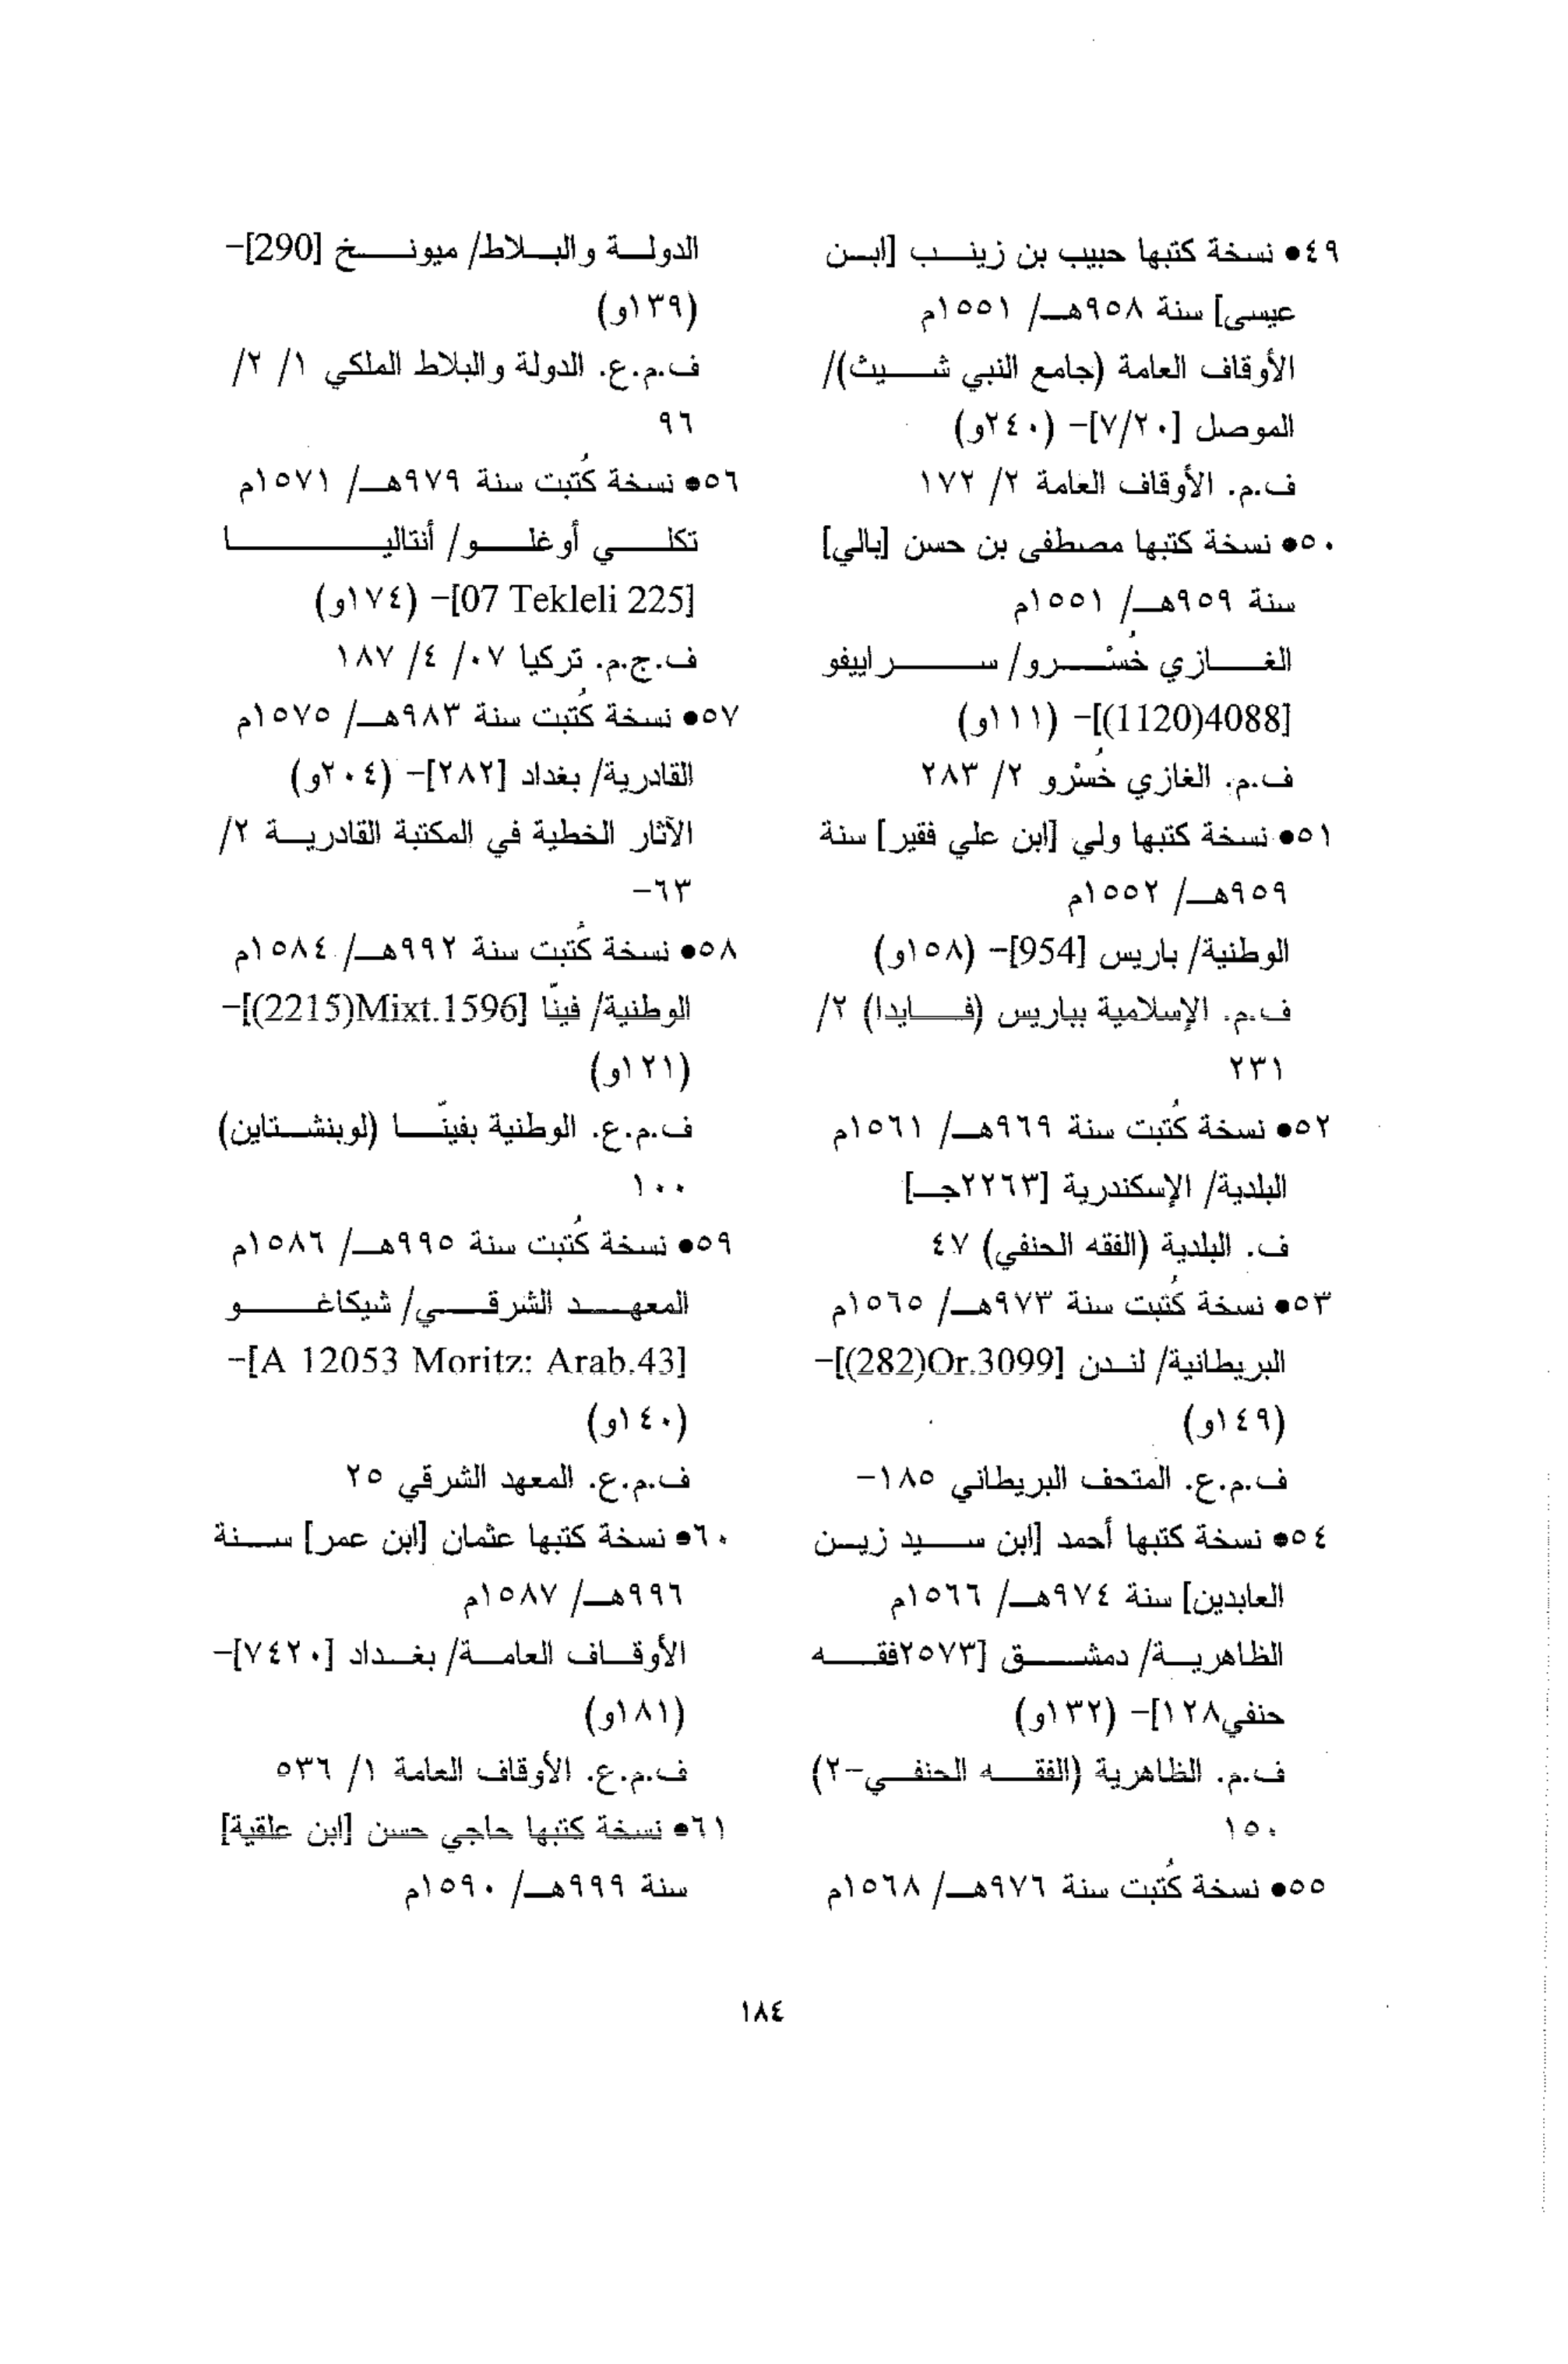 ٤٩• نسخة كتبها حبيب بن زينب [ابن
عيسى] سنة ٩٥٨هـ/ ١٥٥١م
الأوقاف العامة (جامع النبي شيث)/
الموصل [٧/٢٠]– (٢٤٠و)
ف.م. الأوقاف العامة ٢/ ١٧٢
٥٠• نسخة كتبها مصطفى بن حسن [بالي]
سنة ٩٥٩هـ/ ١٥٥١م
الغازي خُسْرو/ سراييفو
[4088(1120)]– (١١١و)
ف.م. الغازي خُسْرو ٢/ ٢٨٣
٥١• نسخة كتبها ولي [ابن علي فقير] سنة
٩٥٩هـ/ ١٥٥٢م
الوطنية/ باريس [954]– (١٥٨و)
ف.م. الإسلامية بباريس (فايدا) ٢/
٢٣١
٥٢• نسخة كُتبت سنة ٩٦٩هـ/ ١٥٦١م
البلدية/ الإسكندرية [٢٢٦٣جـ]
ف. البلدية (الفقه الحنفي) ٤٧
٥٣• نسخة كُتبت سنة ٩٧٣هـ/ ١٥٦٥م
البريطانية/ لندن [Or.3099(282)]–
(١٤٩و)
ف.م.ع. المتحف البريطاني ١٨٥–
٥٤• نسخة كتبها أحمد [ابن سيد زين
العابدين] سنة ٩٧٤هـ/ ١٥٦٦م
الظاهرية/ دمشق [٢٥٧٣فقه
حنفي١٢٨]– (١٣٢و)
ف.م. الظاهرية (الفقه الحنفي–٢)
١٥٠
٥٥• نسخة كُتبت سنة ٩٧٦هـ/ ١٥٦٨م
الدولة والبلاط/ ميونخ [290]–
(١٣٩و)
ف.م.ع. الدولة والبلاط الملكي ١/ ٢/
٩٦
٥٦• نسخة كُتبت سنة ٩٧٩هـ/ ١٥٧١م
تكلي أوغلو/ أنتاليا
[07 Tekleli 225]– (١٧٤و)
ف.ج.م. تركيا ٠٧/ ٤/ ١٨٧
٥٧• نسخة كُتبت سنة ٩٨٣هـ/ ١٥٧٥م
القادرية/ بغداد [٢٨٢]– (٢٠٤و)
الآثار الخطية في المكتبة القادرية ٢/
٦٣–
٥٨• نسخة كُتبت سنة ٩٩٢هـ/ ١٥٨٤م
الوطنية/ فينّا [Mixt.1596(2215)]–
(١٢١و)
ف.م.ع. الوطنية بفينّا (لوبنشتاين)
١٠٠
٥٩• نسخة كُتبت سنة ٩٩٥هـ/ ١٥٨٦م
المعهد الشرقي/ شيكاغو
[A 12053 Moritz: Arab.43]–
(١٤٠و)
ف.م.ع. المعهد الشرقي ٢٥
٦٠• نسخة كتبها عثمان [ابن عمر] سنة
٩٩٦هـ/ ١٥٨٧م
الأوقاف العامة/ بغداد [٧٤٢٠]–
(١٨١و)
ف.م.ع. الأوقاف العامة ١/ ٥٣٦
٦١• نسخة كتبها حاجي حسن [ابن علقية]
سنة ٩٩٩هـ/ ١٥٩٠م
١٨٤